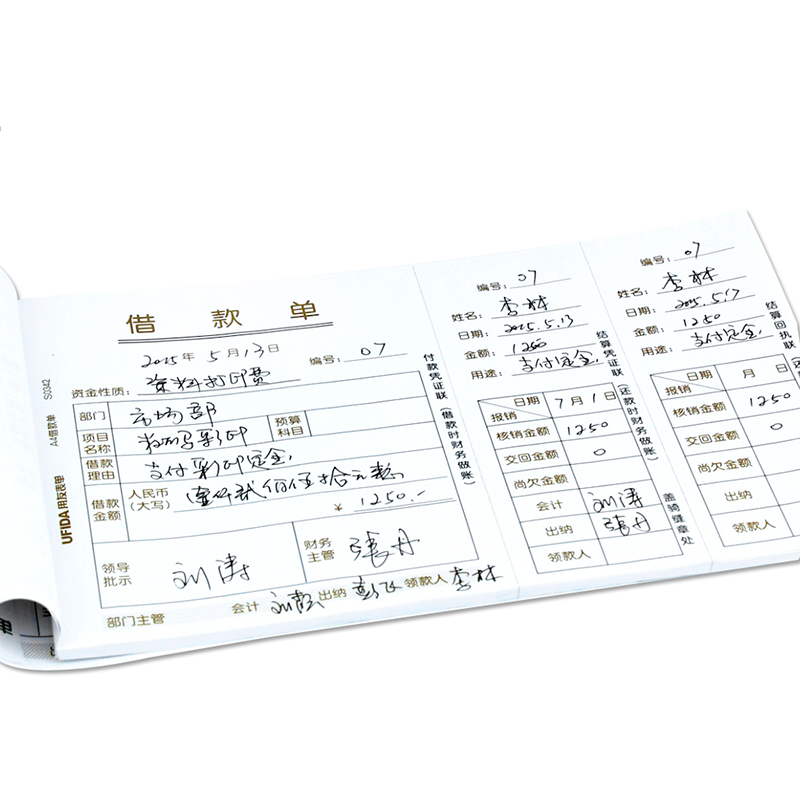 借款单
2025年5月13日
编号：07
资金性质：资料打印费
部门 市场部
预算科目
项目名称 数码彩印
借款理由 支付彩印定金
借款金额 人民币(大写) 壹仟贰佰伍拾元整
¥ 1250.-
领导批示 刘涛
财务主管 張丹
部门主管
会计 出纳 领款人 李林
付款凭证联（借款时财务做账）
UFIDA用友表单 A4借款单 S0342
编号：07
姓名：李林
日期：2025.5.13
金额：1250
用途：支付定金
日期 7月1日
报销
核销金额 1250
交回金额 0
尚欠金额
会计 刘涛
出纳 張丹
领款人
结算凭证联（还款时财务做账）
盖骑缝章处
编号：07
姓名：李林
日期：2025.5.17
金额：1250
用途：支付定金
日期 月 日
报销
核销金额 1250
交回金额 0
尚欠金额
出纳
领款人
结算回执联
单